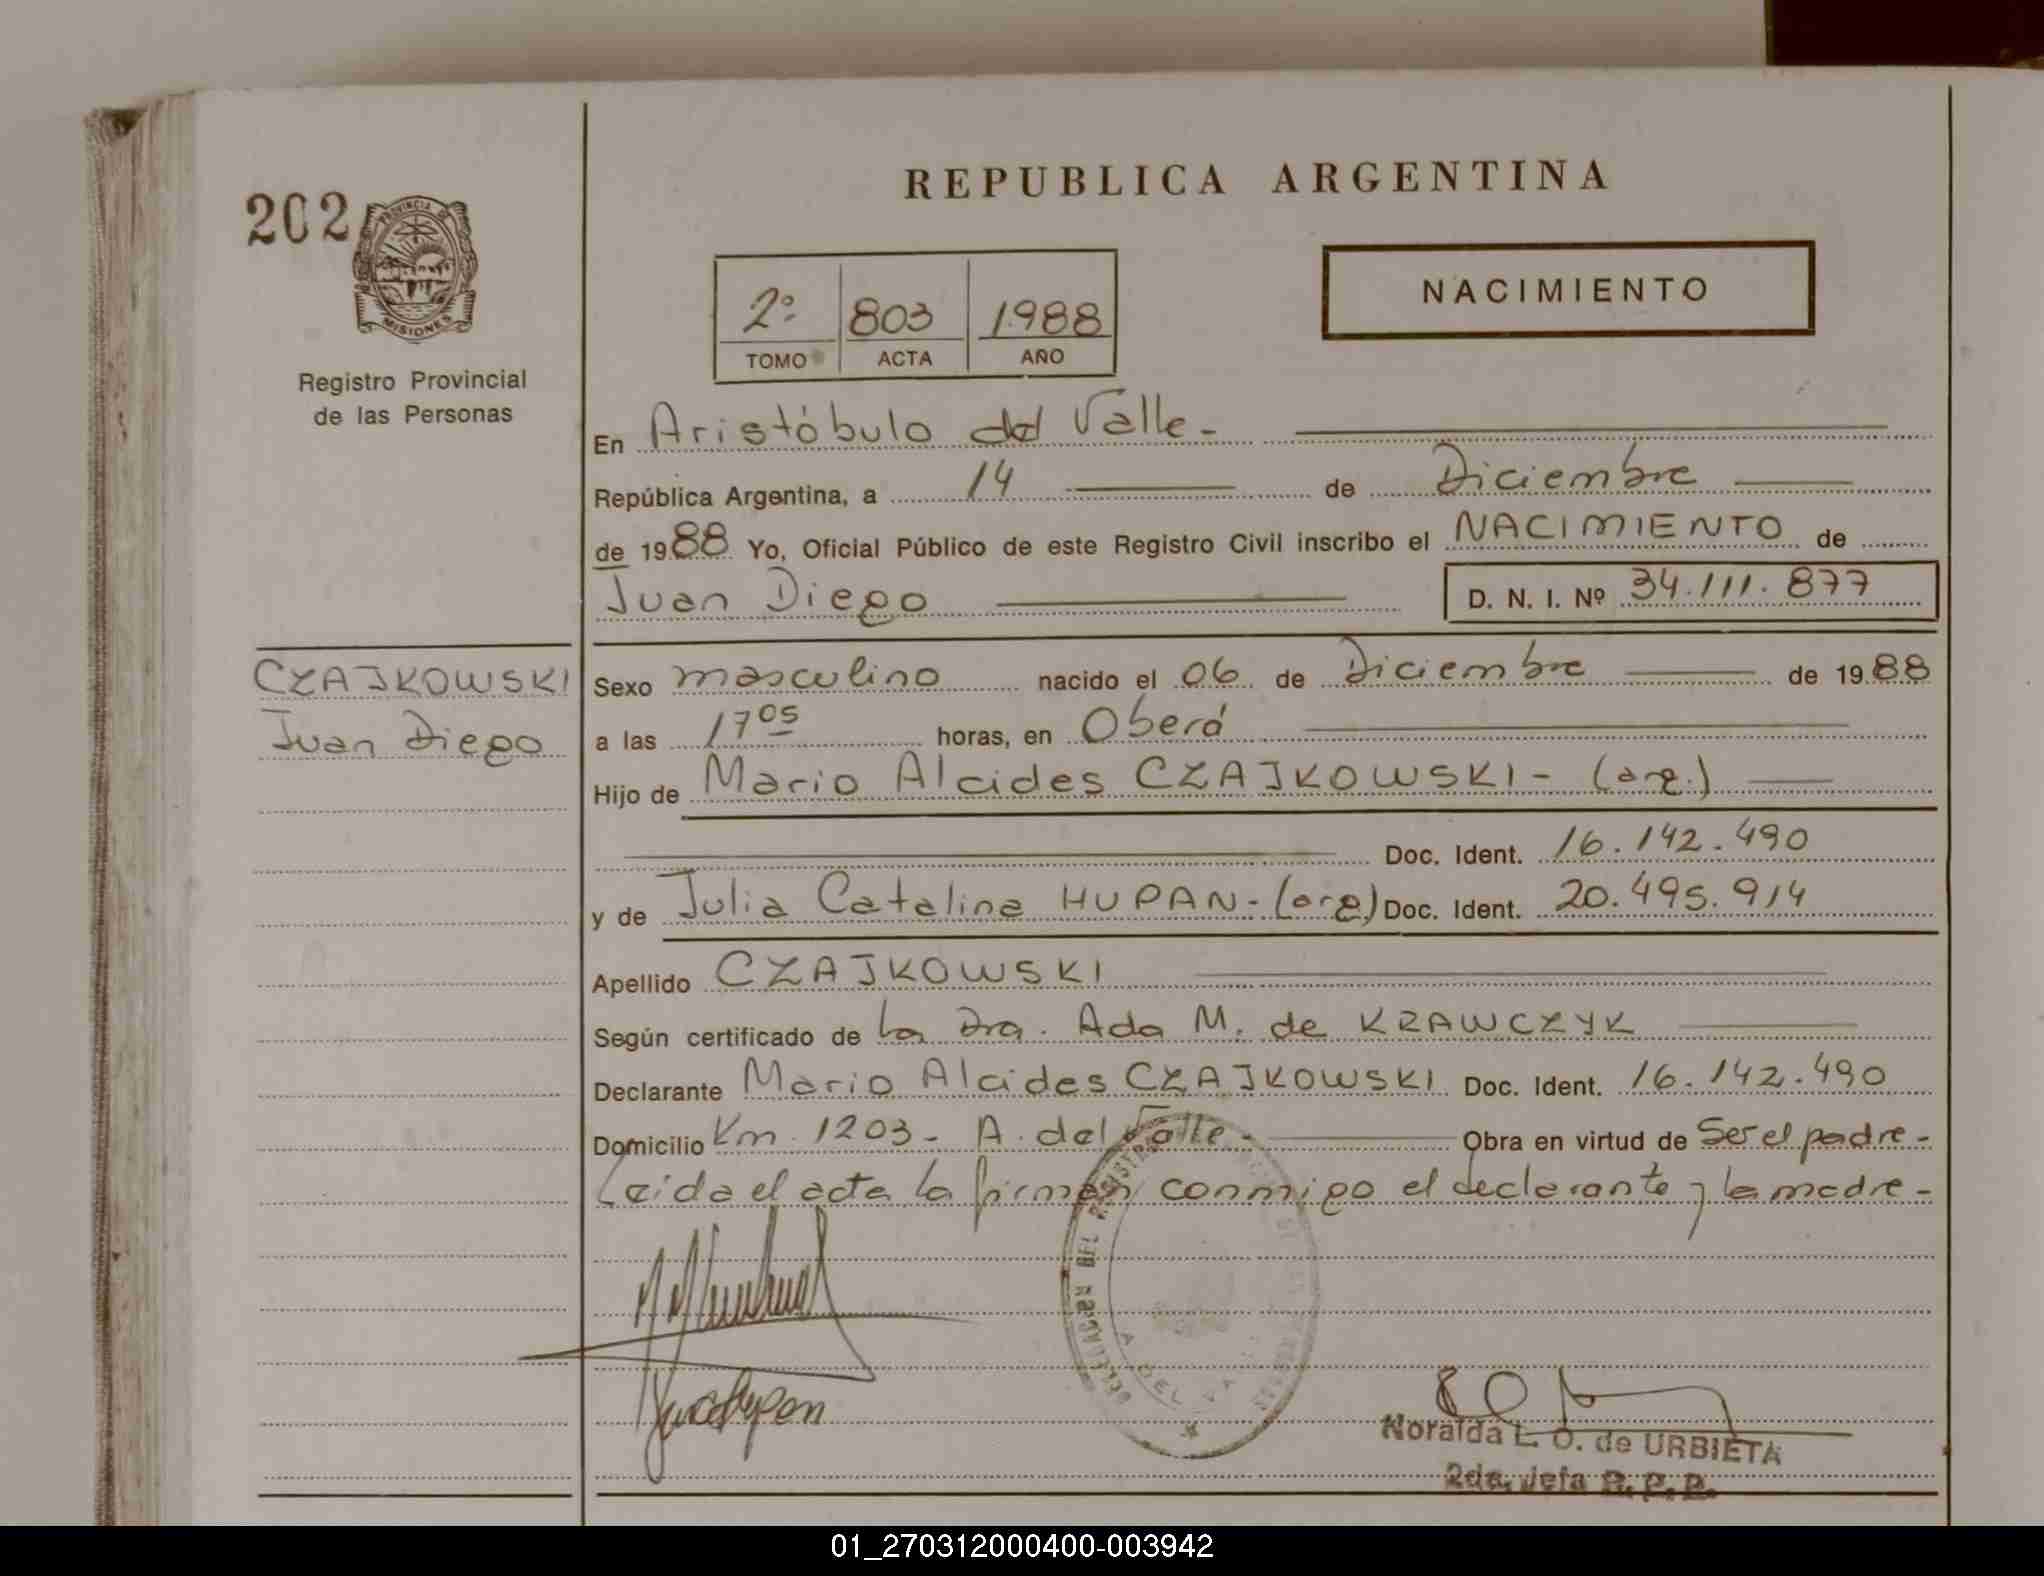 202
PROVINCIA DE
MISIONES
Registro Provincial
de las Personas
CZAJKOWSKI
Juan Diego
REPUBLICA ARGENTINA
NACIMIENTO
2º 803 1988
TOMO ACTA AÑO
En Aristóbulo del Valle -
República Argentina, a 14 de Diciembre
de 1988 Yo, Oficial Público de este Registro Civil inscribo el NACIMIENTO de
Juan Diego D. N. I. Nº 34.111.877
Sexo masculino nacido el 06 de Diciembre de 1988
a las 17 05 horas, en Oberá
Hijo de Mario Alcides CZAJKOWSKI - (arg.)
Doc. Ident. 16.142.490
y de Julia Catalina HUPAN - (arg) Doc. Ident. 20.495.914
Apellido CZAJKOWSKI
Según certificado de la Dra. Ada M. de KRAWCZYK
Declarante Mario Alcides CZAJKOWSKI Doc. Ident. 16.142.490
Domicilio Km. 1203 - A. del Valle - Obra en virtud de Ser el padre -
Leida el acta la firman conmigo el declarante y la madre -
DEL REGISTR
A DEL VA
Noralda L. O. de URBIETA
2da. Jefa R. P. P.
01_270312000400-003942